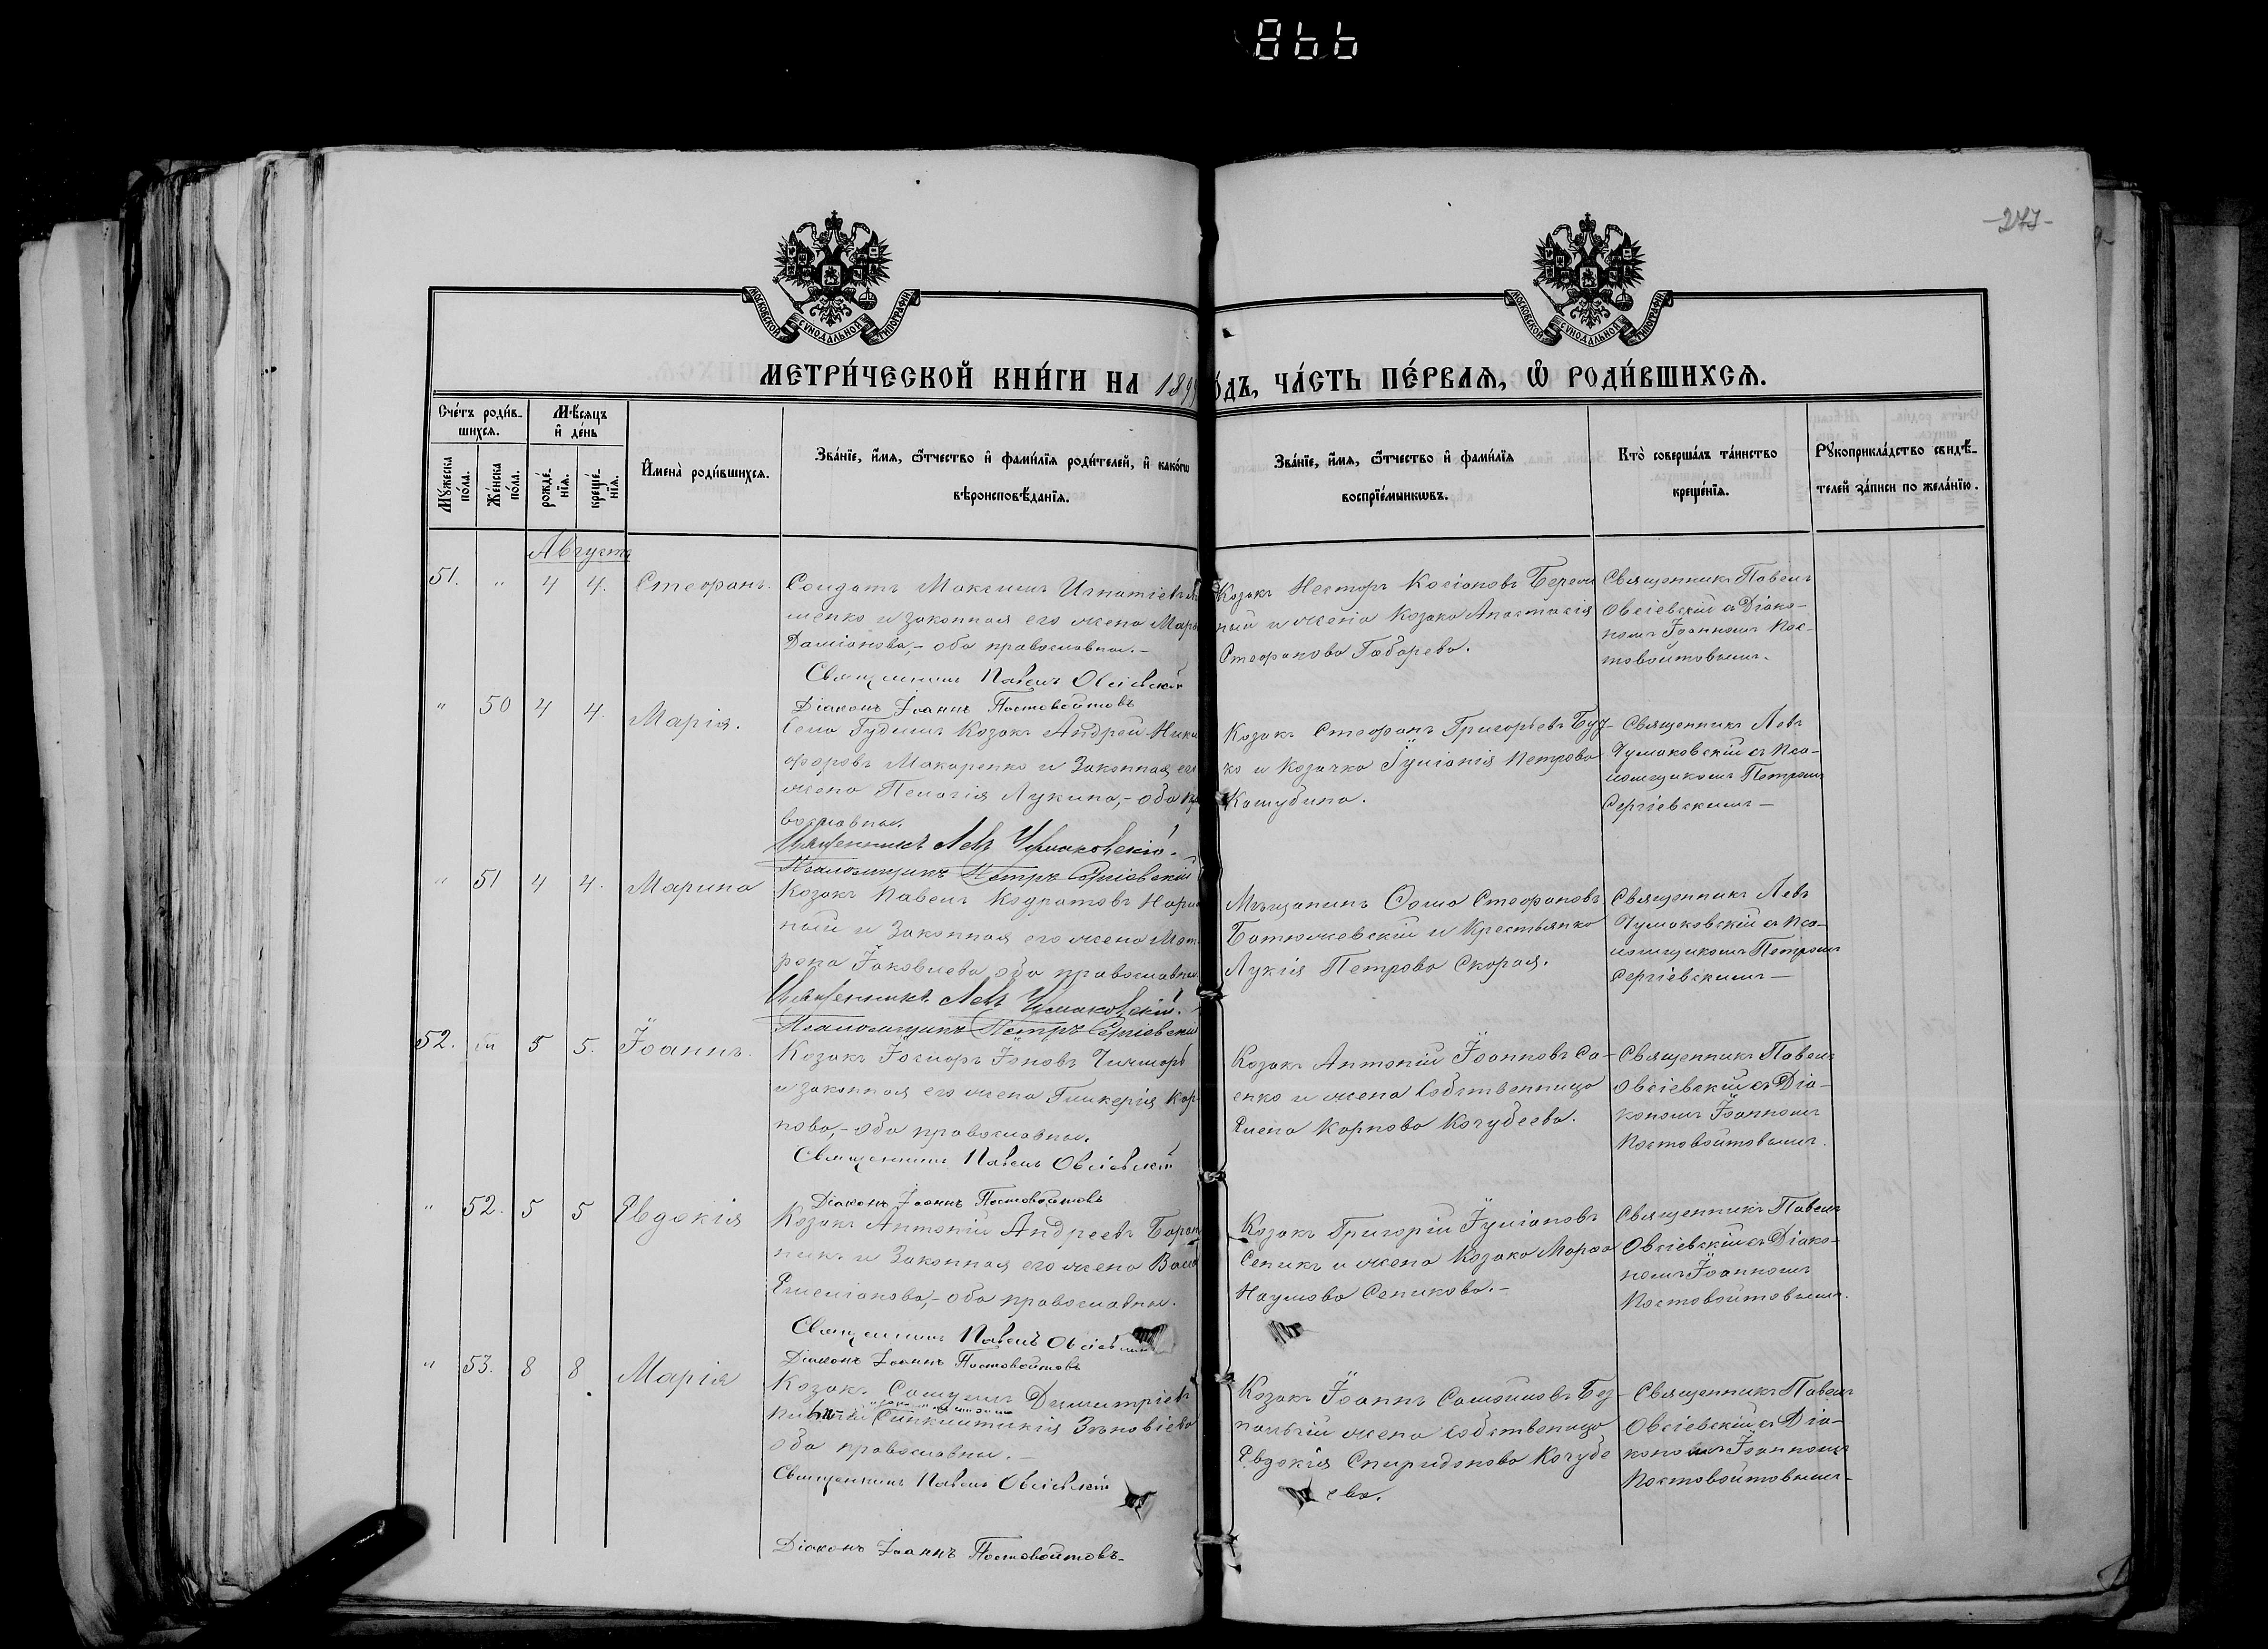 866
-247-
МОСКОВСКОЙ СУНОДАЛЬНОЙ ТИПОГРАФІИ
МОСКОВСКОЙ СУНОДАЛЬНОЙ ТИПОГРАФІИ
МЕТРИ́ЧЕСКОЙ КНИ́ГИ НА 189 ѻ́ДЪ, ЧА́СТЬ ПЕ́РВАЯ, Ѡ҆ РОДИ́ВШИХСЯ.
Сче́тъ роди́в-
шихся.
Мѣ́сяцъ
и҆ де́нь
Мꙋ́жеска
по́ла.
Же́нска
по́ла.
рожде́-
нїя.
креще́-
нїя.
И҆мена̀ роди́вшихся.
Зва́нїе, и҆́мя, ѻ҆́тчество и҆ фами́лїя роди́телей, и҆ како́гѡ
вѣроисповѣ́данїя.
Зва́нїе, и҆́мя, ѻ҆́тчество и҆ фами́лїя
воспрїе́мникѡвъ.
Кто̀ соверша́лъ та́инство
креще́нїя.
Рꙋкоприкла́дство свидѣ́-
телей за́писи по жела́нїю.
Августъ
51. " 4 4. Стефанъ.
Солдатъ Максимъ Игнатіевъ
менко и законная его жена
Даміанова,- оба православны.-
Священникъ Павелъ Овсіевскій
Діаконъ Іоаннъ Постовойтовъ
Козакъ Несторъ Касіановъ
ный и жена Козака Анастасія
Стефанова Габарева.
Священникъ Павелъ
Овсіевскій съ Діако-
номъ Іоанномъ Пос-
товойтовымъ.
" 50 4 4. Марія.
Села Гудимъ Козакъ Андрей Ники
форовъ Макаренко и Законная его
жена Пелагія Лукина,- оба пра
вославны.
Священникъ Левъ Чумаковскій.
Псаломщикъ Петръ Сергіевскій
Козакъ Стефанъ Григорьевъ Буд-
ко и Козачка Іуліанія Петрова
Кашубина.
Священникъ Левъ
Чумаковскій съ Пса-
ломщикомъ Петромъ
Сергіевскимъ-
" 51 4 4. Марина
Козакъ Павелъ Кодратовъ
ный и Законная его жена Мот
рона Іаковлева, оба православны.
Священникъ Левъ Чумаковскій.
Псаломщикъ Петръ Сергіевскій
Мѣщанинъ Ѳома Стефановъ
Батюжевскій и Крестьянка
Лукія Петрова Скорая.
Священникъ Левъ
Чумаковскій съ Пса-
ломщикомъ Петромъ
Сергіевскимъ-
52. " 5 5. Іоаннъ.
Козакъ Іосифъ Іоновъ
и законная его жена Гликерія Кар
пова,- оба православны.
Священникъ Павелъ Овсіевскій
Діаконъ Іоаннъ Постовойтовъ
Козакъ Антоній Іоанновъ Са-
енко и жена Собственница
Елена Карпова Кочубеева.
Священникъ Павелъ
Овсіевскій съ Діа-
кономъ Іоанномъ
Постовойтовымъ.
" 52. 5 5 Евдокія
Козакъ Антоній Андреевъ Баран
никъ и Законная его жена
Емеліанова,- оба православны.
Священникъ Павелъ Овсіевскій
Діаконъ Іоаннъ Постовойтовъ
Козакъ Григорій Іуліановъ
Сеникъ и жена Козака Марфа
Наумова Сеникова.-
Священникъ Павелъ
Овсіевскій съ Діако-
номъ Іоанномъ
Постовойтовымъ.
" 53. 8 8 Марія
Козакъ Самуилъ Димитріевъ
Синклитикія Зѣновіева
оба православны.-
Священникъ Павелъ Овсіевскій
Діаконъ Іоаннъ Постовойтовъ-
Козакъ Іоаннъ Самойловъ Без-
палый и жена Собственица
Евдокія Спиридонова Кочубе
ева.
Священникъ Павелъ
Овсіевскій съ Діа-
кономъ Іоанномъ
Постовойтовымъ-